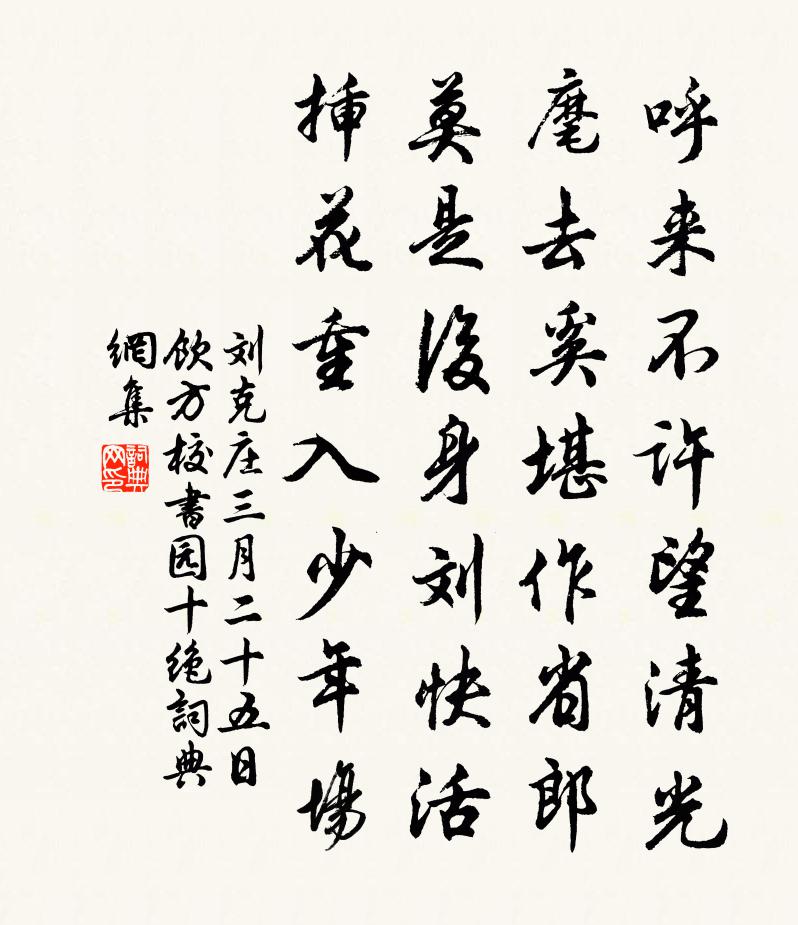 呼来不许望清光
麾去奚堪作省郎
莫是後身刘快活
插花重入少年場
刘克庄三月二十五日
飲方校書园十绝詞典
網集
詞典
网印